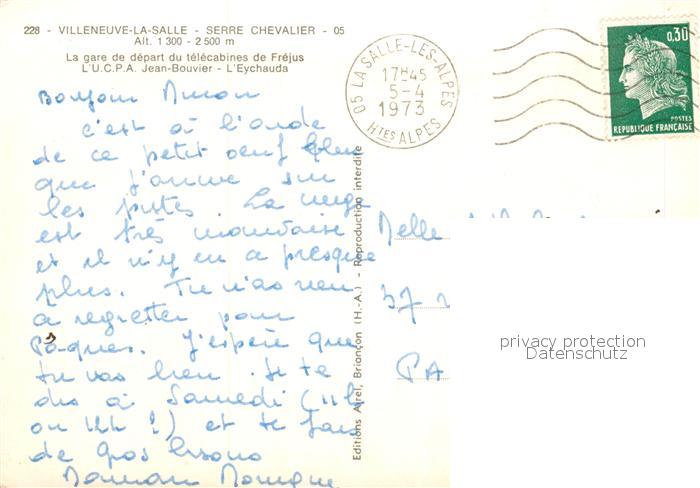 228 - VILLENEUVE-LA-SALLE - SERRE CHEVALIER - 05
Alt. 1 300 - 2 500 m
La gare de départ du télécabines de Fréjus
L'U.C.P.A. Jean-Bouvier - L'Eychauda
Bonjour
c'est à l'onde
de ce petit oeuf bleu
que j'arrive sur
les pistes. La neige
est très mauvaise
et il n'y en a presque
plus. Tu n'as rien
à regretter pour
Pâques. J'espère que
tu vas bien. Je te
dis à Samedi (11h
ou 12h ?) et te fais
de gros bisous
Maman Monique
Editions Ajrel, Briançon (H.-A.) - Reproduction interdite
05 LA SALLE-LES-ALPES
17H45
5-4
1973
HTES ALPES
0,30
POSTES
REPUBLIQUE FRANÇAISE
Melle
37
PA
privacy protection
Datenschutz